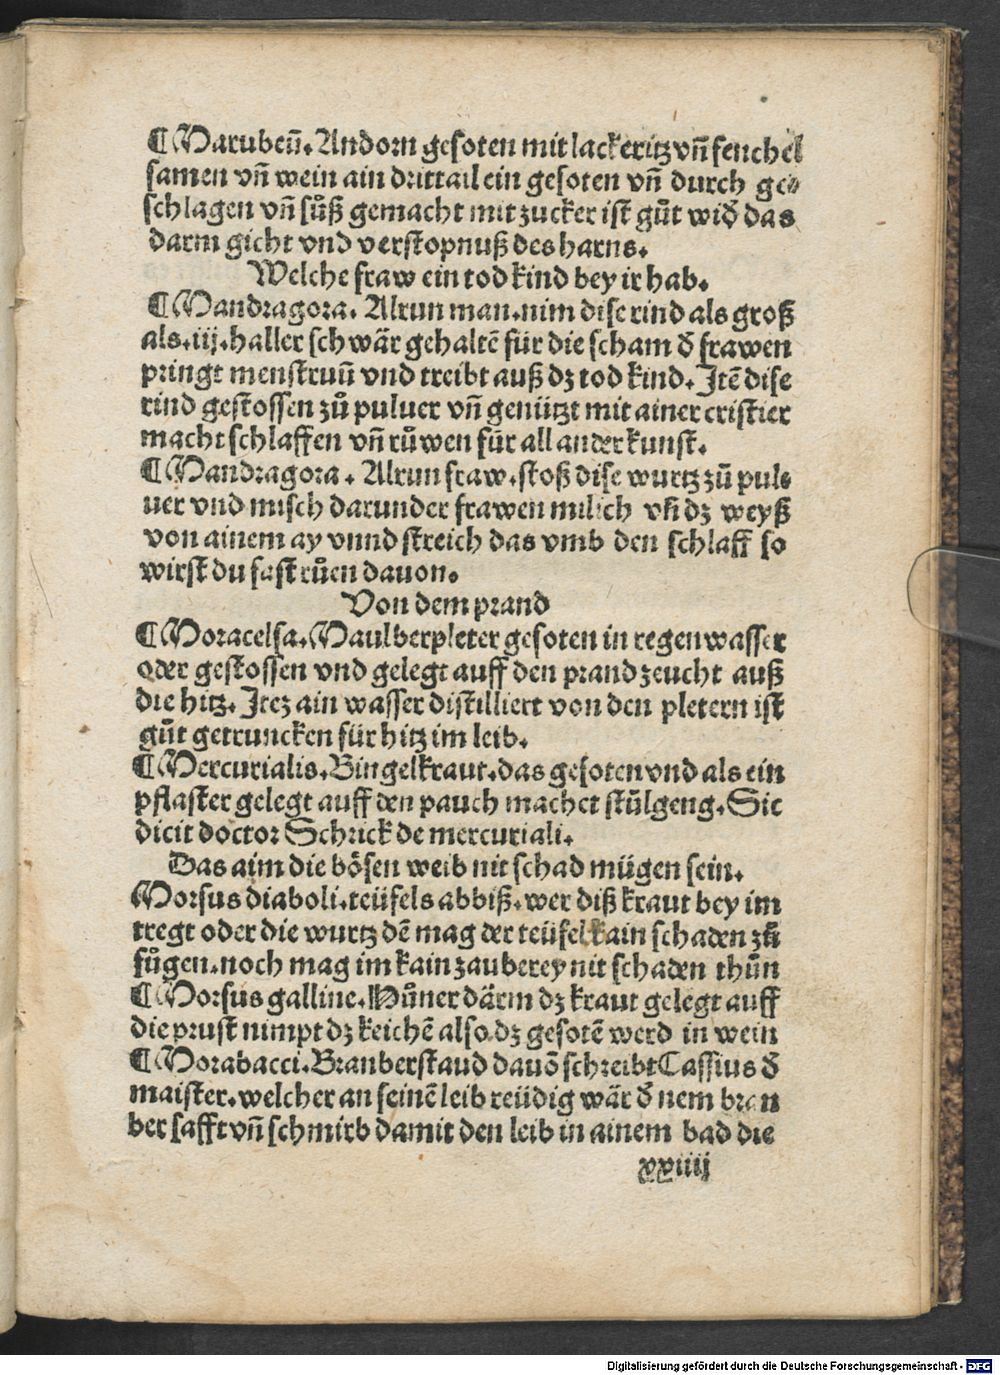 ¶ Marubeū. Andorn gesoten mit lackeritz vñ fenchel
samen vñ wein ain drittail ein gesoten vñ durch ge⸗
schlagen vñ sůß gemacht mit zucker ist gůt wið das
darm gicht vnd verstopnuß des harns.
Welche fraw ein tod kind bey ir hab.
¶ Mandragora. Alrun man. nim dise rind als groß
als. iij. haller schwär gehaltē für die scham ð frawen
pringt menstruū vnd treibt auß dz tod kind. Itē dise
rind gestossen zů puluer vñ genützt mit ainer cristier
macht schlaffen vñ růwen für all ander kunst.
¶ Mandragora. Alrun fraw. stoß dise wurtz zů pul⸗
uer vnd misch darunder frawen milich vñ dz weyß
von ainem ay vnnd streich das vmb den schlaff so
wirst du fast růen dauon.
Von dem prand
¶ Moracelsa. Maulberpleter gesoten in regenwasser
oder gestossen vnd gelegt auff den prand zeucht auß
die hitz. Itez ain wasser distilliert von den pletern ist
gůt getruncken für hitz im leib.
¶ Mercurialis. Bingelkraut. das gesoten vnd als ein
pflaster gelegt auff den pauch machet stůlgeng. Sic
dicit doctor Schrick de mercuriali.
Das aim die bösen weib nit schad mügen sein.
Morsus diaboli. teüfels abbiß. wer diß kraut bey im
tregt oder die wurtz dē mag der teüfel kain schaden zů
fůgen. noch mag im kain zauberey nit schaden thůn
¶ Morsus galline. Hůner därm dz kraut gelegt auff
die prust nimpt dz keichē also. dz gesotē werd in wein
¶ Morabacci. Branberstaud dauō schreibt Cassius ð
maister. welcher an seinē leib reüdig wär ð nem bran
ber safft vñ schmirb damit den leib in ainem bad die
xxiiij
Digitalisierung gefördert durch die Deutsche Forschungsgemeinschaft - DFG